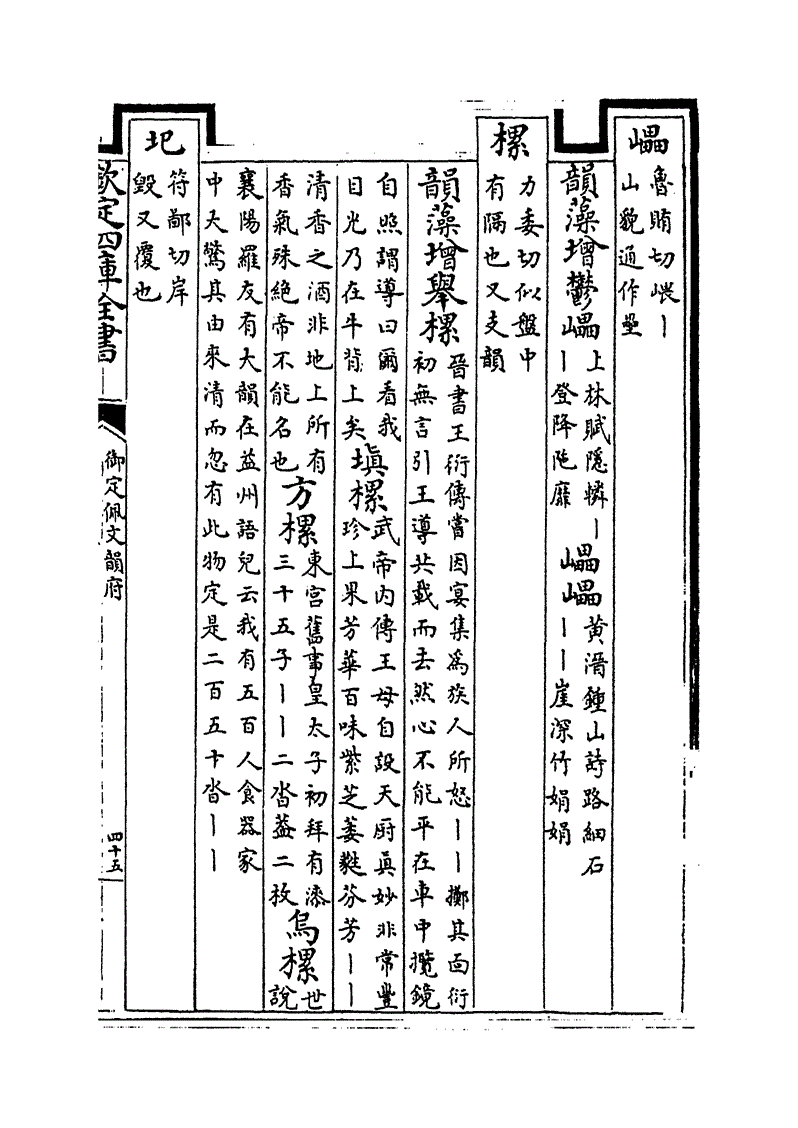 㠥
魯賄切嵔丨
山貌通作壘
韻藻增鬱㠥
上林賦隱轔丨
丨登降陁靡
㠥㠥
黄溍鍾山詩路細石
丨丨崖深竹娟娟
樏
力委切似盤中
有隔也又支韻
韻藻增舉樏
晉書王衍傳嘗因宴集爲族人所怒丨丨擲其面衍
初無言引王導共載而去然心不能平在車中攬鏡
自照謂導曰爾看我
目光乃在牛背上矣
塡樏
武帝内傳王母自設天廚眞妙非常豐
珍上果芳華百味紫芝萎蕤芬芳丨丨
清香之酒非地上所有
香氣殊絶帝不能名也
方樏
東宫舊事皇太子初拜有漆
三十五子丨丨二沓葢二枚
烏樏
世
說
襄陽羅友有大韻在益州語兒云我有五百人食器家
中大驚其由來清而忽有此物定是二百五十沓丨丨
圮
符鄙切岸
毀又覆也
欽定四庫全書
御定佩文韻府
四十五